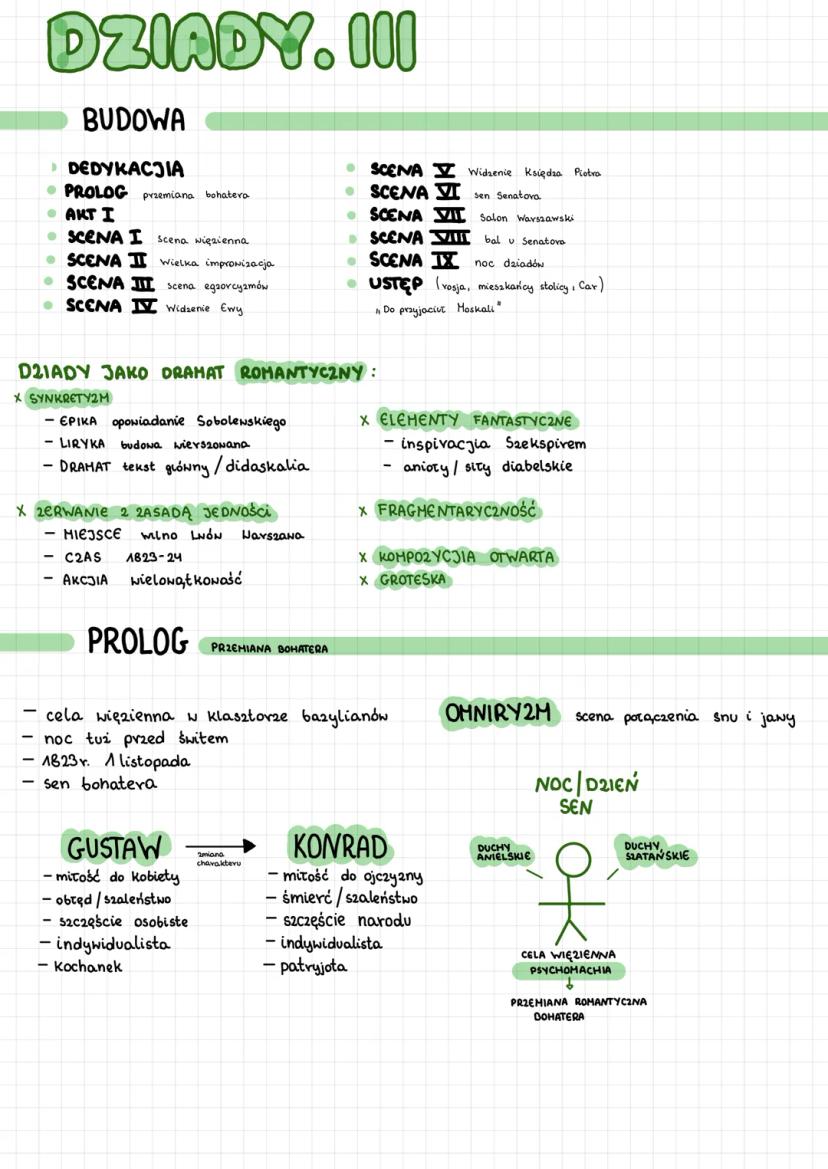 DZIADY. III
BUDOWA
DEDYKACJIA
PROLOG przemiana bohatera
AKT I
SCENA I scena więzienna
SCENA II Wielka improwizacja
SCENA III scena egzorcyzmów
SCENA IV Widzenie Ewy
SCENA V Widzenie Księdza Piotra
SCENA VI sen Senatora
SCENA VII Salon Warszawski
SCENA VIII bal u Senatora
SCENA IX noc dziadów
USTĘP (rosja, mieszkańcy stolicy, Car)
„Do przyjaciół Moskali"
DZIADY JAKO DRAMAT ROMANTYCZNY:
x SYNKRETYZM
- EPIKA opowiadanie Sobolewskiego
- LIRYKA budowa wierszowana
- DRAMAT tekst główny / didaskalia
x ZERWANIE Z ZASADĄ JEDNOŚCI
- MIEJSCE wilno Lwów Warszawa
- CZAS 1823-24
- AKCJIA wielowątkowość
x ELEMENTY FANTASTYCZNE
- inspiracjia Szekspirem
- anioły / siły diabelskie
x FRAGMENTARYCZNOŚĆ
x KOMPOZYCJIA OTWARTA
x GROTESKA
PROLOG PRZEMIANA BOHATERA
- cela więzienna w klasztorze bazylianów
- noc tuż przed świtem
- 1823r. 1 listopada
- sen bohatera
GUSTAW
zmiana
charakteru
KONRAD
- miłość do kobiety
- obłęd / szaleństwo
- szczęście osobiste
- indywidualista
- kochanek
- miłość do ojczyzny
- śmierć / szaleństwo
- szczęście narodu
- indywidualista
- patryjota
OMNIRYZM scena połączenia snu i jawy
NOC/DZIEŃ
SEN
DUCHY
ANIELSKIE
DUCHY
SZATAŃSKIE
CELA WIĘZIENNA
PSYCHOMACHIA
PRZEMIANA ROMANTYCZNA
BOHATERA